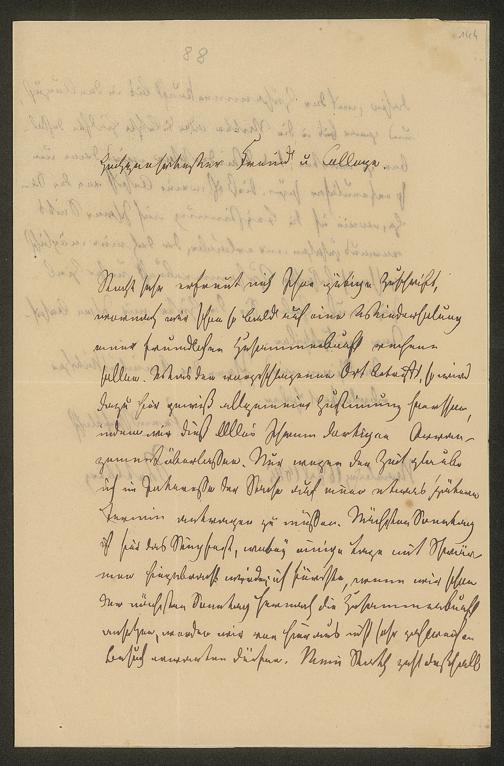 144
88
Hochgeehrtester Freund u College
Recht sehr erfreut mich Ihre gütige Zuschrift,
wornach wir schon so bald auf eine Wiederholung
einer freundlichen Zusammenkunft rechnen
sollen. Was den vorgeschlagenen Ort betrifft, so wird
dazu hier gewiß allgemeine Zustimmung herrschen,
indem wir dieß Alles Ihrem dortigen
überlassen. Nur wegen der Zeit glaube
ich im Interesse der Sache auf einen etwas spätern
Termin antragen zu müssen. Nächsten Sonntag
ist hier das Sängfest, wobey einige Tage mit
hingebracht werden; ich fürchte, wenn wir schon
den nächsten Sonntag hernach die Zusammenkunft
ansetzen, werden wir von hier aus nicht sehr zahlreichen
Besuch erwarten dürfen. Mein Rath geht deßhalb